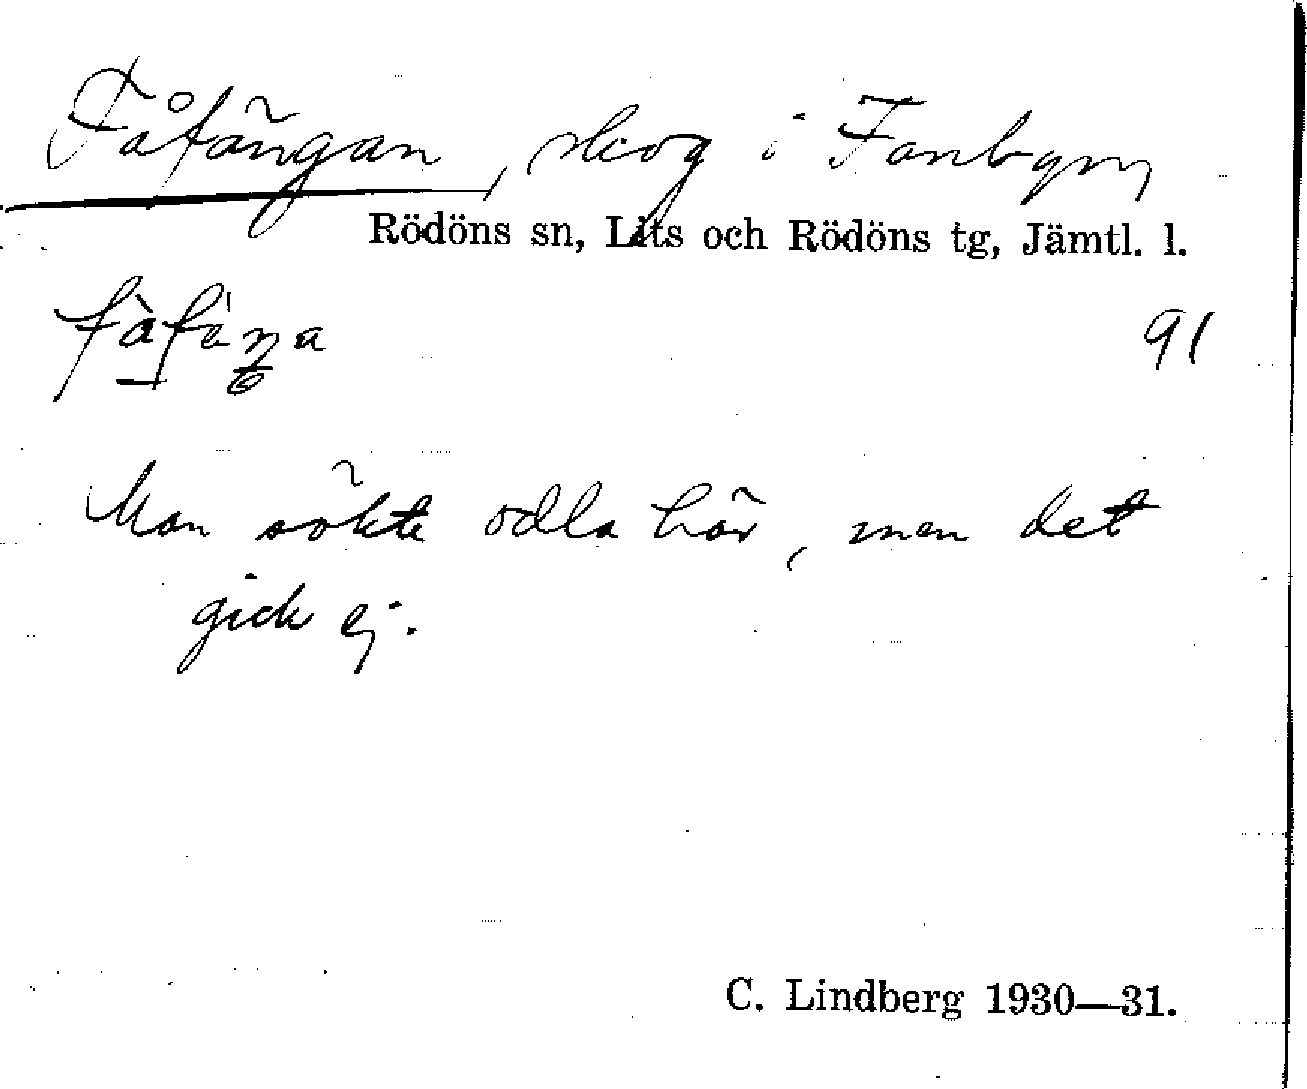 Fåfängan, skog i Fanbyn,
Rödöns sn, Lits och Rödöns tg, Jämtl. l.
91
Man sökte odla här, men det
gick ej.
C. Lindberg 1930—31.